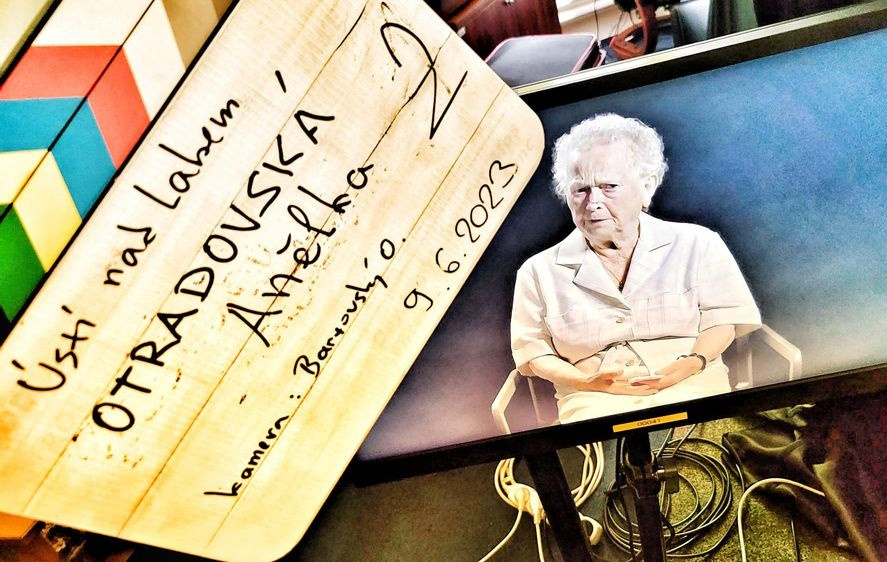 Ústí nad Labem
OTRADOVSKÁ
Anělka
2
kamera: Bartovský O.
9.6.2023
00041